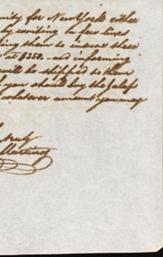 nity for New York either
by writing a few lines
ing them to insure these
at $350. and informing
will be shipped to them
you should buy the Jalap
whatever amount you may
truly
Martinez